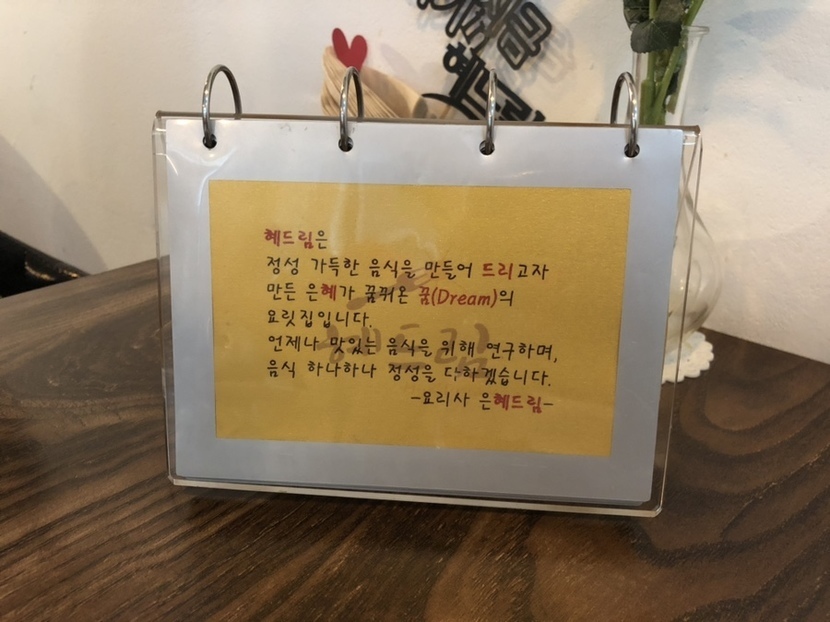 혜드림은
정성 가득한 음식을 만들어 드리고자
만든 은혜가 꿈꿔온 꿈(Dream)의
요릿집입니다.
언제나 맛있는 음식을 위해 연구하며,
음식 하나하나 정성을 다하겠습니다.
-요리사 은혜드림-
혜드림